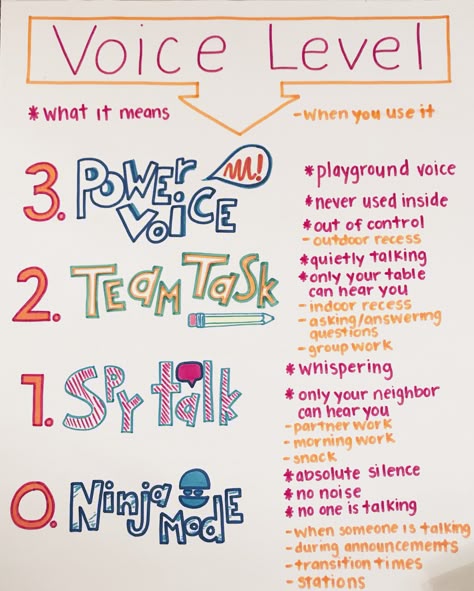 Voice Level
*What it means
-When you use it
3. Power
Voice
*playground voice
*never used inside
*out of control
-outdoor recess
2. Team Task
*quietly talking
*only your table
can hear you
-indoor recess
-asking/answering
questions
-group work
1. Spy talk
*whispering
*only your neighbor
can hear you
-partner work
-morning work
-snack
0. Ninja
Mode
*absolute silence
*no noise
*no one is talking
-when someone is talking
-during announcements
-transition times
-stations